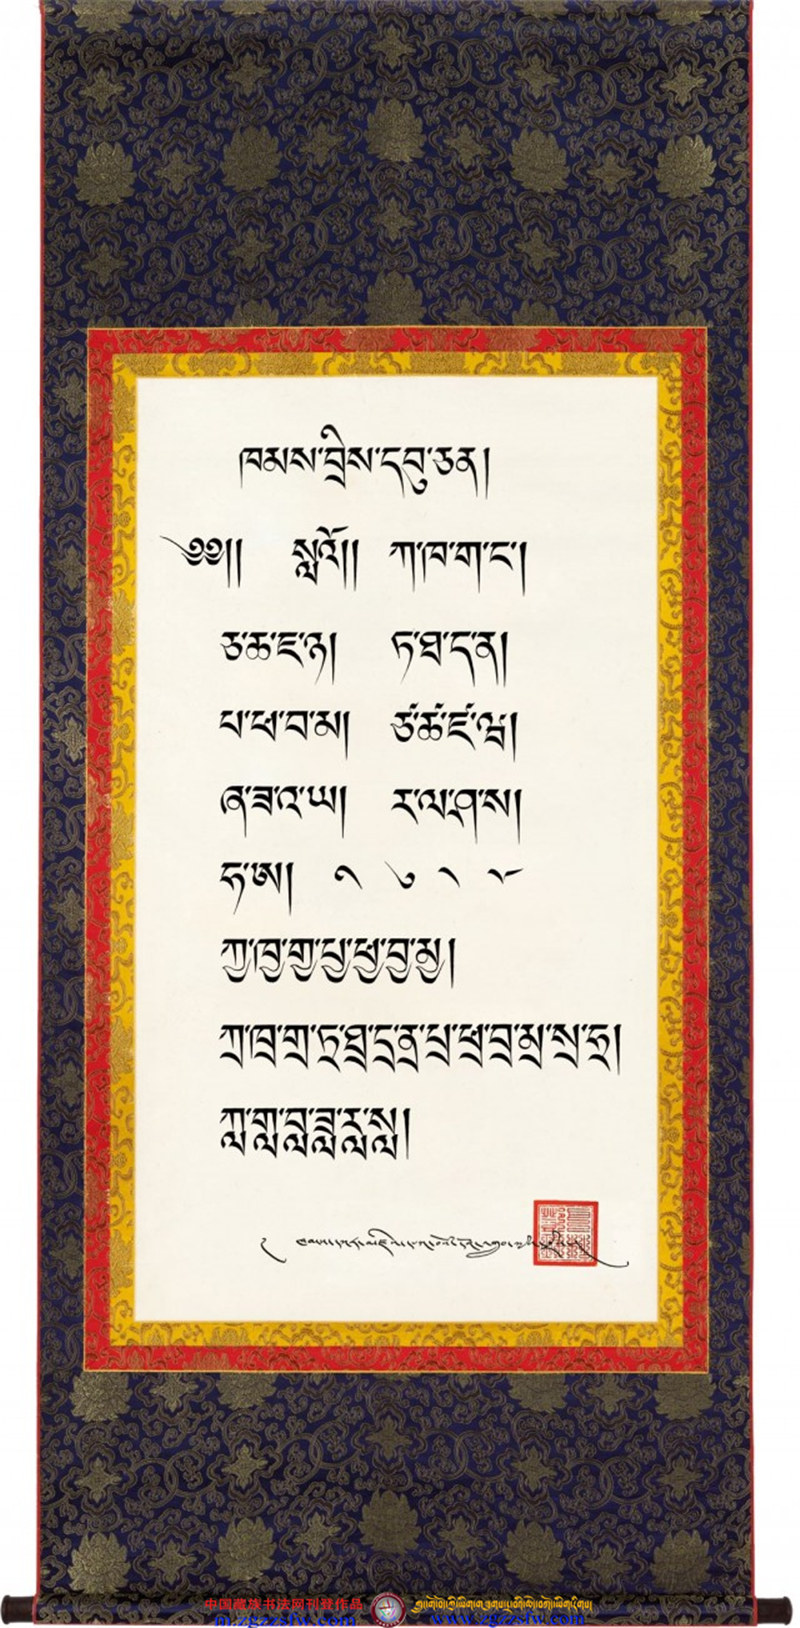 ཁམས་བྲིས་དབུ་ཅན།
༄༅།། སླའོ།། ཀ་ཁ་ག་ང་།
ཅ་ཆ་ཇ་ཉ། ཏ་ཐ་ད་ན།
པ་ཕ་བ་མ། ཙ་ཚ་ཛ་ཝ།
ཞ་ཟ་འ་ཡ། ར་ལ་ཤ་ས།
ཧ་ཨ། ི ུ ེ ོ
ཀྱ་ཁྱ་གྱ་པྱ་ཕྱ་བྱ་མྱ།
ཀྲ་ཁྲ་གྲ་ཏྲ་ཐྲ་དྲ་ནྲ་པྲ་ཕྲ་བྲ་མྲ་སྲ་ཧྲ།
ཀླ་གླ་བླ་ཟླ་རླ་སླ།
中国藏族书法网刊登作品
m.zgzzsfw.com www.zgzzsfw.com